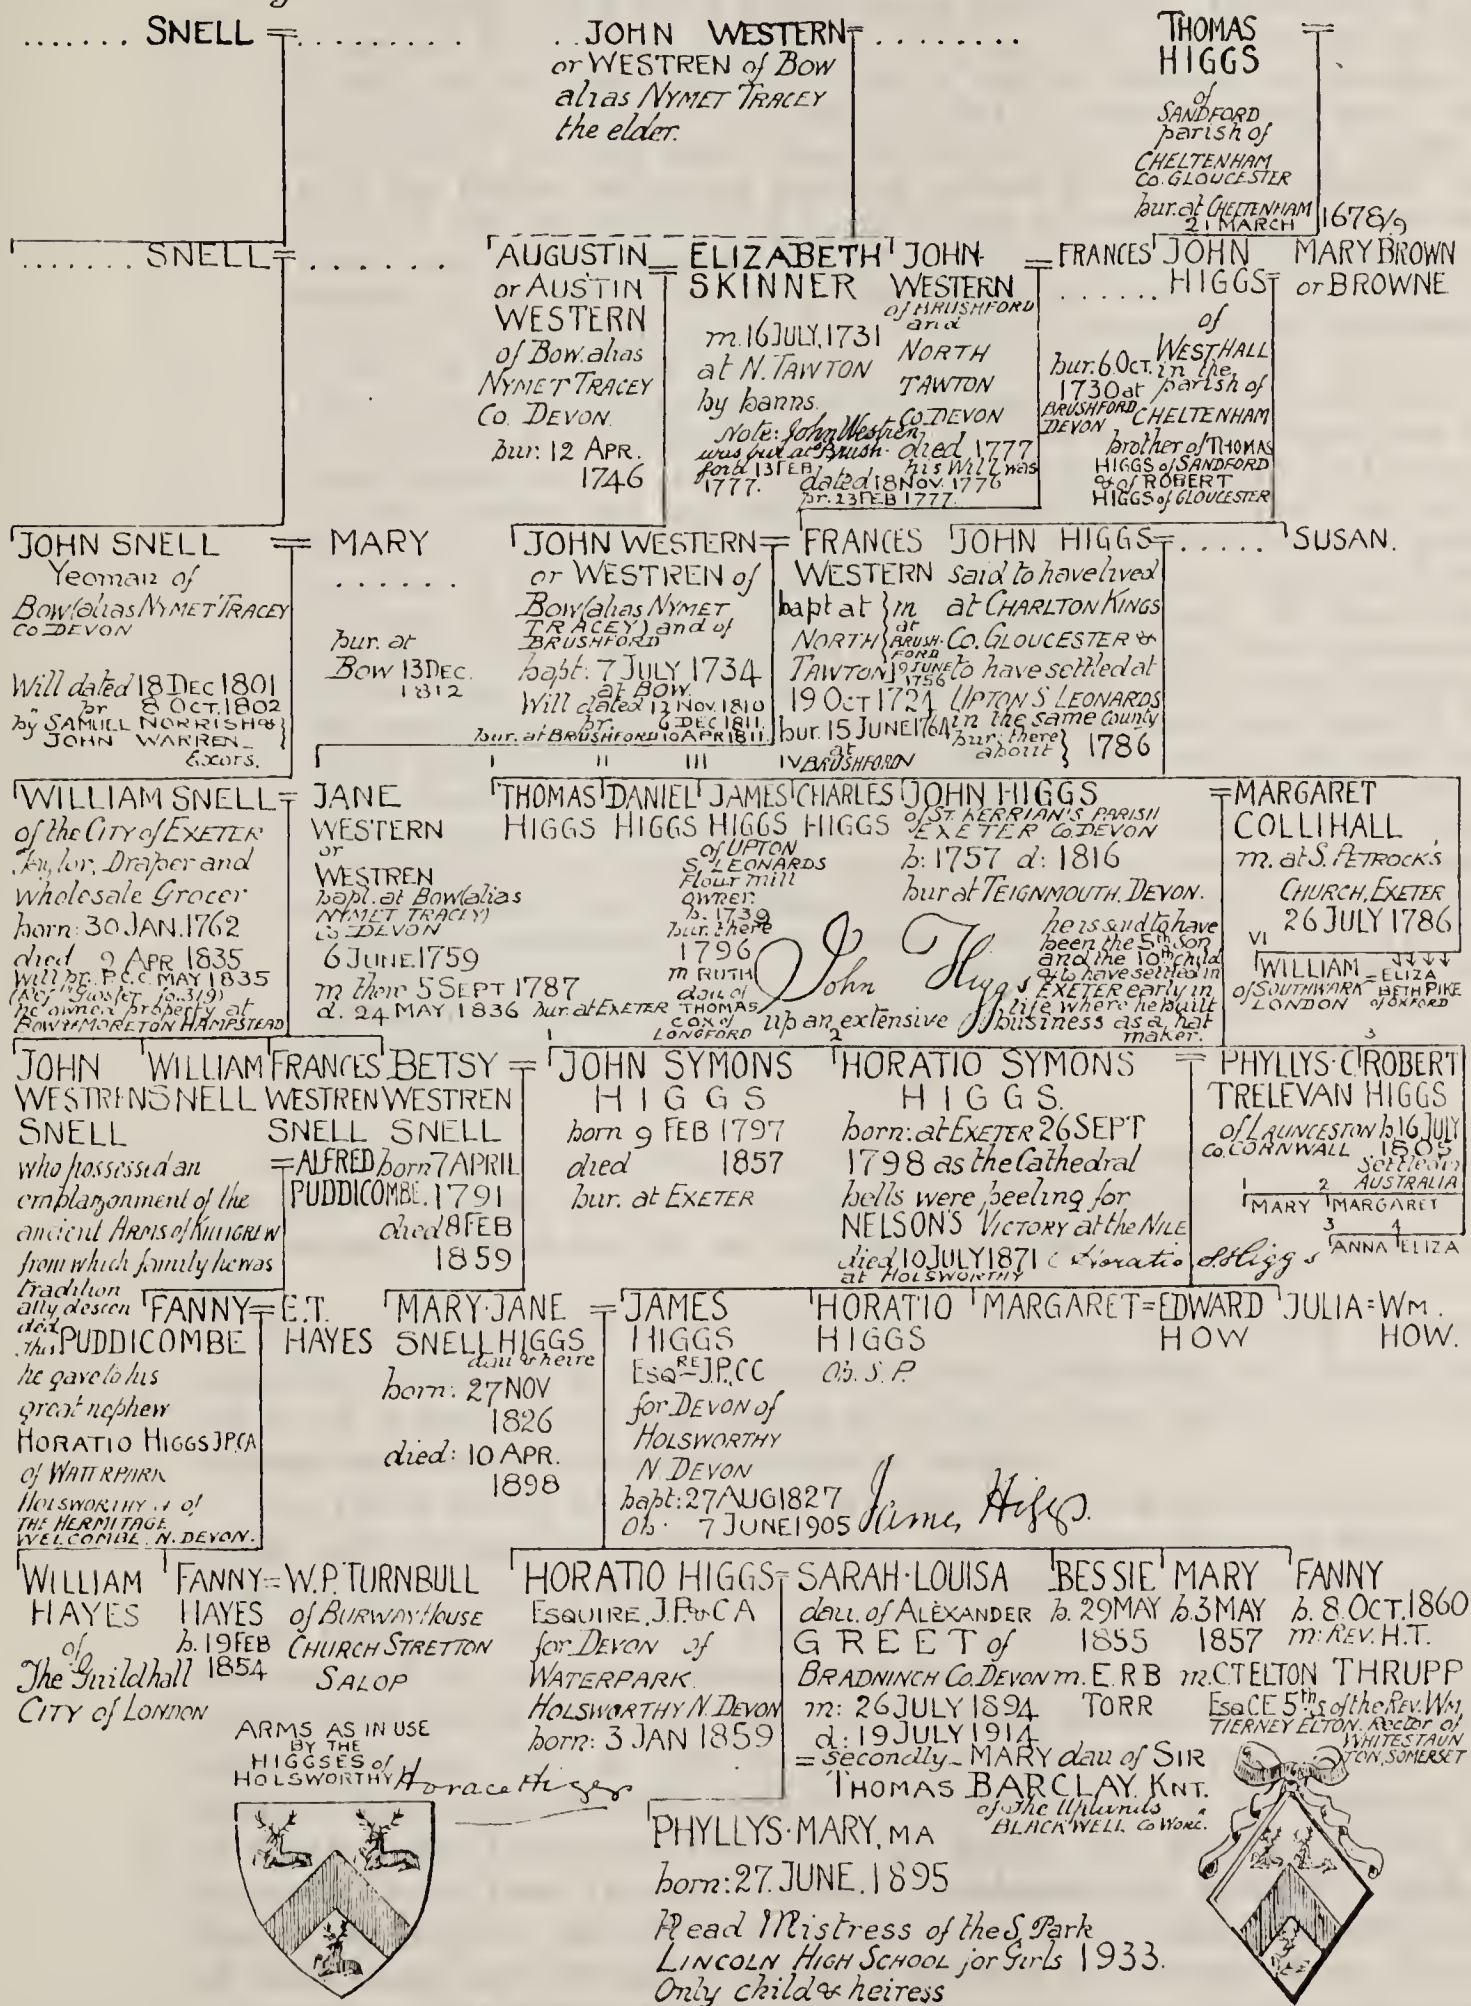 ....... SNELL = .........
.. JOHN WESTERN = ........
or WESTREN of Bow
alias NYMET TRACEY
the elder.
THOMAS =
HIGGS
of
SANDFORD
parish of
CHELTENHAM
CO. GLOUCESTER
bur. at CHELTENHAM
21 MARCH 1678/9
....... SNELL = ......
AUGUSTIN =
or AUSTIN
WESTERN
of Bow. alias
NYMET TRACEY
Co. DEVON.
bur: 12 APR.
1746
ELIZABETH
SKINNER
m. 16 JULY, 1731
at N. TAWTON
by banns.
JOHN =
WESTERN
of BRUSHFORD
and
NORTH
TAWTON
Co DEVON
died 1777
his Will was
dated 18 NOV. 1776
pr. 23 FEB 1777.
Note: John Westren
was bur at Brush-
ford 13 FEB
1777.
FRANCES
......
bur. 6 Oct.
1730 at
BRUSHFORD
DEVON
JOHN
HIGGS =
of
WESTHALL
in the
parish of
CHELTENHAM
brother of THOMAS
HIGGS of SANDFORD
& of ROBERT
HIGGS of GLOUCESTER
MARY BROWN
or BROWNE
JOHN SNELL =
Yeoman of
Bow (alias NYMET TRACEY
CO DEVON
Will dated 18 DEC 1801
pr 8 OCT. 1802
by SAMUEL NORRISH & }
JOHN WARREN
Exors.
MARY
......
bur. at
Bow 13 DEC.
1812
JOHN WESTERN =
or WESTREN of
Bow (alias NYMET
TRACEY) and of
BRUSHFORD
bapt: 7 JULY 1734
at BOW.
Will dated 12 NOV. 1810
pr. 6 DEC 1811.
bur. at BRUSHFORD 10 APR 1811.
FRANCES
WESTERN
bapt at } m
NORTH } at BRUSH-
FORD
TAWTON } 9 JUNE
1756
19 Oct 1724
bur. 15 JUNE 1764
at
BRUSHFORD
JOHN HIGGS = .....
said to have lived
at CHARLTON KINGS
Co. GLOUCESTER &
to have settled at
UPTON S LEONARDS
in the same county
bur. there }
about } 1786
SUSAN.
WILLIAM SNELL =
of the CITY of EXETER
Taylor, Draper and
wholesale Grocer
born: 30 JAN. 1762
died 9 APR 1835
Will pr. P.C.C. MAY 1835
he owned property at
BOW & MORETON HAMPSTEAD
JANE
WESTERN
or
WESTREN
bapt. at Bow (alias
NYMET TRACEY)
Co DEVON
6 JUNE. 1759
m there 5 SEPT 1787
d. 24 MAY, 1836 bur. at EXETER
I II III IV
THOMAS DANIEL JAMES CHARLES
HIGGS HIGGS HIGGS HIGGS
of UPTON
S LEONARDS
Flour mill
owner.
b. 1739
bur. there
1796
m RUTH
dau of
THOMAS
COX of
LONGFORD
JOHN HIGGS =
of ST. KERRIAN'S PARISH
EXETER Co. DEVON
b: 1757 d: 1816
bur at TEIGNMOUTH, DEVON.
John Higgs
he is said to have
been the 5th Son
and the 10th child
& to have settled in
EXETER early in
life where he built
up an extensive business as a hat
maker.
MARGARET
COLLIHALL
m. at S. PETROCK'S
CHURCH, EXETER
26 JULY 1786
VI
WILLIAM = ELIZA
of SOUTHWARK BETH PIKE
LONDON of OXFORD
JOHN
WESTREN
SNELL
who possessed an
emblazonment of the
ancient ARMS of KILLIGREW
from which family he was
tradition
ally descen
ded.
This
he gave to his
great nephew
HORATIO HIGGS JP.CA
of WATERPARK
HOLSWORTHY & of
THE HERMITAGE
WELCOMBE. N. DEVON.
WILLIAM
SNELL
FRANCES
WESTREN
SNELL
= ALFRED
PUDDICOMBE.
BETSY =
WESTREN
SNELL
born 7 APRIL
1791
died 8 FEB
1859
1
JOHN SYMONS
HIGGS
born 9 FEB 1797
died 1857
bur. at EXETER
2
HORATIO SYMONS =
HIGGS.
born: at EXETER 26 SEPT
1798 as the Cathedral
bells were peeling for
NELSON'S VICTORY at the NILE
died 10 JULY 1871
at HOLSWORTHY
Horatio S. Higgs
PHYLLYS. C.
TRELEVAN
of LAUNCESTON
Co. CORNWALL
3
ROBERT
HIGGS
b 16 JULY
1805
Settled in
AUSTRALIA
1 2
MARY MARGARET
3 4
ANNA ELIZA
FANNY = E.T.
PUDDICOMBE HAYES
MARY. JANE =
SNELL HIGGS
dau & heire
born: 27 NOV
1826
died: 10 APR.
1898
JAMES
HIGGS
ESQRE J.P., CC
for DEVON of
HOLSWORTHY
N. DEVON
bapt: 27 AUG 1827
Ob. 7 JUNE 1905
James Higgs.
HORATIO
HIGGS
Ob. S. P.
MARGARET = EDWARD
HOW
JULIA = WM.
HOW.
WILLIAM
HAYES
of
The Guildhall
CITY of LONDON
FANNY =
HAYES
b. 19 FEB
1854
W.P. TURNBULL
of BURWAY House
CHURCH STRETTON
SALOP
HORATIO HIGGS =
ESQUIRE, J.P. & C A
for DEVON of
WATERPARK
HOLSWORTHY N. DEVON
born: 3 JAN 1859
SARAH. LOUISA
dau. of ALEXANDER
GREET of
BRADNINCH Co. DEVON
m: 26 JULY 1894
d: 19 JULY 1914
= secondly MARY dau of SIR
THOMAS BARCLAY. KNT.
of The Uplands
BLACKWELL Co WORC.
BESSIE
b. 29 MAY
1855
m. E. R B
TORR
MARY
b. 3 MAY
1857
m. C TELTON
Esq CE 5th s of the REV. WM,
TIERNEY ELTON. Rector of
WHITESTAUN
TON, SOMERSET
FANNY
b. 8. OCT. 1860
m: REV. H.T.
THRUPP
ARMS AS IN USE
BY THE
HIGGSES of
HOLSWORTHY
Horace Higgs
PHYLLYS. MARY, MA
born: 27. JUNE. 1895
Head Mistress of the S. Park
LINCOLN HIGH SCHOOL for Girls 1933.
Only child & heiress